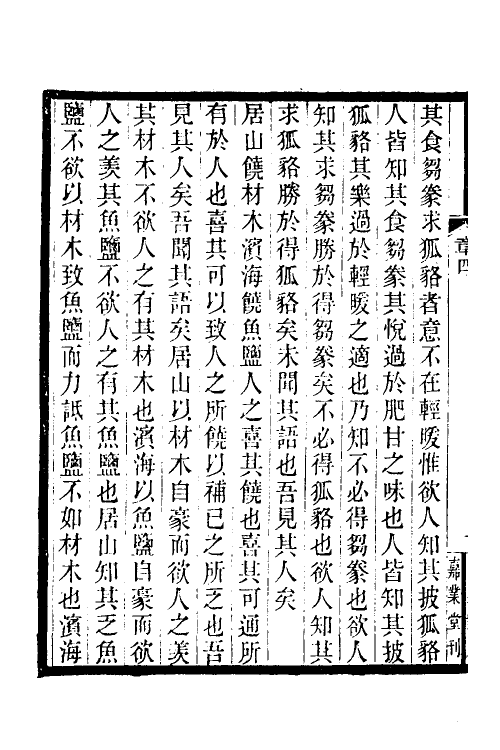 其食芻豢求狐貉者意不在輕暖惟欲人知其披狐貉
人皆知其食芻豢其悅過於肥甘之味也人皆知其披
狐貉其樂過於輕暖之適也乃知不必得芻豢也欲人
知其求芻豢勝於得芻豢矣不必得狐貉也欲人知其
求狐貉勝於得狐貉矣未聞其語也吾見其人矣
居山饒材木濱海饒魚鹽人之喜其饒也喜其可通所
有於人也喜其可以致人之所饒以補已之所乏也吾
見其人矣吾聞其語矣居山以材木自豪而欲人之羨
其材木不欲人之有其材木也濱海以魚鹽自豪而欲
人之羨其魚鹽不欲人之有其魚鹽也居山知其乏魚
鹽不欲以材木致魚鹽而力詆魚鹽不如材木也濱海
章四
嘉業堂刊